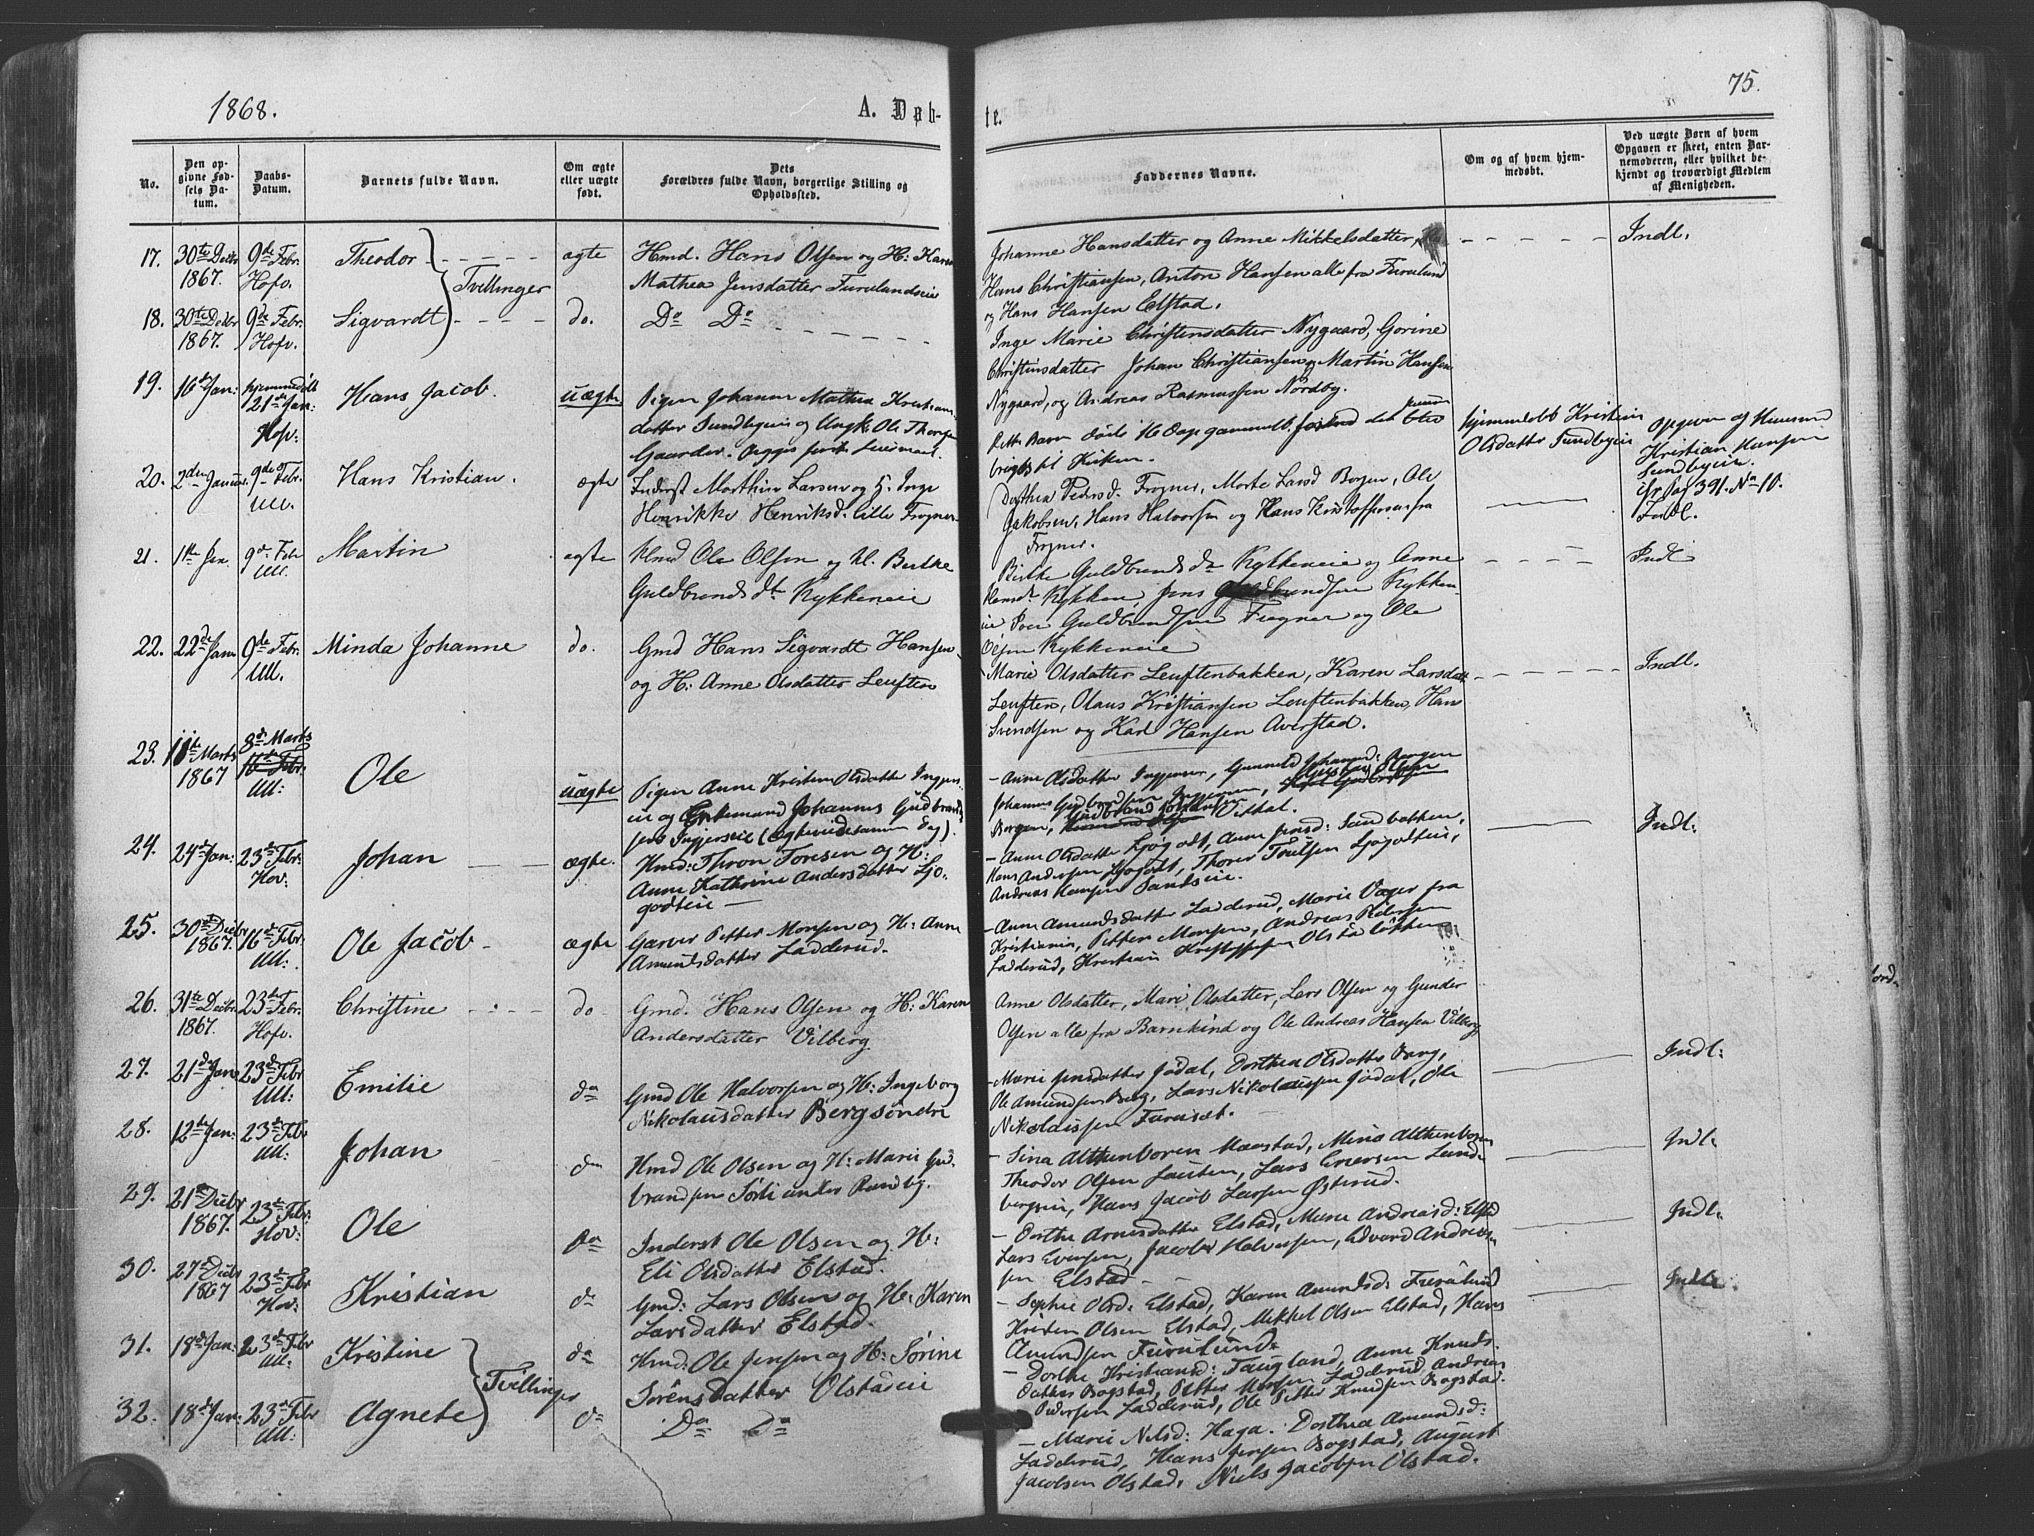 1868.
A. Døb-
te.
75.
No.
Den op-
givne Fød-
sels Da-
tum.
Daabs-
Datum.
Barnets fulde Navn.
Om ægte
eller uægte
født.
Dets
Forældres fulde Navn, borgerlige Stilling og
Opholdssted.
Faddernes Navne.
Om og af hvem hjem-
medøbt.
Ved uægte Børn af hvem
Opgaven er skeet, enten Bar-
nemoderen, eller hvilket be-
kjendt og troværdigt Medlem
af Menigheden.
17. 30te Decbr 1867. 9de Febr. Hofv. Theodor } Tvillinger ægte Hmd. Hans Olsen og H: Karen
Mathea Jensdatter Furulundseie
Johanne Hansdatter og Anne Mikkelsdatter
Hans Christiansen, Anton Hansen alle fra Furulund
og Hans Hansen Elstad.
Indl.
18. 30te Decbr 1867. 9de Febr. Hofv. Sigvardt do. Do Do
Inge Marie Christensdatter Nygaard, Gorine
Christinsdatter Johan Christiansen og Martin Hansen
Nygaard, og Andreas Rasmussen Nordby.
19. 16de Jan: hjemmedøbt 21de Jan: Hofv: Hans Jacob. uægte Pigen Johanne Mathea Kristians-
datter Sundbyeie og Ungk: Ole Thorsen
Gaarder.
Dette Barn døde 16 Dage gammelt. forend det blev
bragt til Kirken.
hjemmedøbt Kristein
Olsdatter Sundbyeie
Opgivn af Huusm
Kristian Hansen
Sundbyeie.
cfr Pag 391. No 10.
20. 2den Januar 9de Febr. Ull. Hans Kristian. ægte Inderst Marthin Larsen og H. Inge
Henrikke Henriksd. Lille Frogner
Dorthea Pedersd. Frogner, Marte Larsd Borgen, Ole
Jakobsen, Hans Halvorsen og Hans Kristoffersen fra
Frogner.
Indl.
21. 1ste Jan 9de Feb Ull. Martin ægte Hmd Ole Olsen og H. Birthe
Guldbrandsdt Kykkeneie
Birthe Guldbrandsdt Kykkeneie og Anne
Hansdt Kykken, Jens Guldbrandsen Kykken-
eie Iver Guldbrandsen Frogner og Ole
Olsen Kykkeneie
Indl
22. 22de Jan. 9de Febr. Ull. Minda Johanne do. Gmd Hans Sigvardt Hansen
og H: Anne Olsdatter Leuften
Marie Olsdatter Leuftenbakken, Karen Larsdatt
Leuften, Olaus Kristiansen Leuftenbakken, Han
Svendsen og Karl Hansen Averstad.
Indl.
23. 11te Marts 1867 8de Marts 16de Febr: Ull: Ole uægte Pigen Anne Kristine Olsdatter Ingjers-
eie og Enkemand Johannes Gudbrand-
sen Ingjerseie
Anne Olsdatter Ingjerseie, Gunnild Johannesd: Borgen
Johannes Gudbrandsen Ingjerseie,
Borgen,
24. 24de Jan: 23de Febr. Hov: Johan ægte. Hmd: Thron Toresen og H:
Anne Kathrine Andersdatter Ljo-
godteie
Anne Olsdatter Ljogodt, Anne Jensd: Sandbakken,
Hans Andersen Ljogodt, Thorer Toresen Ljogodteie,
Andreas Hansen Sandseie.
Indl:
25. 30te Decbr 1867. 16de Febr. Ull: Ole Jacob ægte Garver Petter Monsen og H: Anne
Amundsdatter Ladderud.
Anne Amundsdatter Ladderud, Marie Vager fra
Kristiania, Petter Monsen, Andreas Pedersen
Ladderud, Kristian Kristoffersen Olstadløkken
26. 31te Decbr. 1867. 23de Febr. Hofv. Christine do Gmd. Hans Olsen og H: Karen
Andersdatter Vilberg
Anne Olsdatter, Mari Olsdatter, Lars Olsen og Gunder
Olsen alle fra Barnkind og Ole Andreas Hansen Vilberg
27. 21de Jan 23de Febr Ull: Emilie do Gmd Ole Halvorsen og H: Ingeborg
Nikolausdatter Berg søndre
Marie Jensdatter Jødal, Dorthea Olsdatter Berg,
Ole Amundsen Berg, Lars Nikolaisen Jødal, Ole
Nikolaisen Furuset.
Indl:
28. 12te Jan: 23de Feb Ull: Johan do Hmd Ole Olsen og H: Marie Gud-
brandsen Sørli under Randby.
Sina Althenboren Maastad, Mina Althenboren
Theodor Olsen Lauten, Lars Enersen Lund-
bergeie, Hans Jacob Larsen Østerud.
Indl.
29. 21de Decbr 1867. 23de Feb: Hov: Ole do Inderst Ole Olsen og H:
Eli Olsdatter Elstad.
Dorthe Arnesdatter Elstad, Maren Andreasd: Elstad
Lars Evensen, Jacob Halvorsen, Edvard Andrea-
sen Elstad
Indl.
30. 27de Decbr 1867 23de Febr Hov: Kristian do Gmd: Lars Olsen og H: Karen
Larsdatter Elstad.
Sophie Olsd: Elstad, Karen Amundsd: Furulund
Kristen Olsen Elstad, Mikkel Olsen Elstad, Hans
Amundsen Furulund.
Indl.
31. 18de Jan: 23de Febr Ull: Kristine } Tvillinger do Hmd: Ole Jensen og H: Sørine
Sørensdatter Olstadeie
Dorthe Kristiansd: Taugland, Anne Knuds-
datter Bogstad, Petter Monsen Ladderud, Andreas
Pedersen Ladderud, Ole Petter Knudsen Bogstad.
32. 18de Jan: 23de Febr Ull: Agnete do Do Do
Marie Nilsd: Haga. Dorthea Amundsd:
Ladderud, Hans Jensen Bogstad, August
Jacobsen Olstad, Niels Jacobsen Olstad.